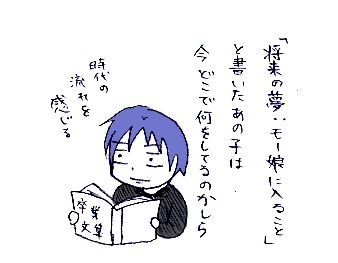 「将来の夢：モー娘に入ること」
と書いたあの子は
今どこで何をしてるのかしら
時代の
流れを
感じる
卒業
文集